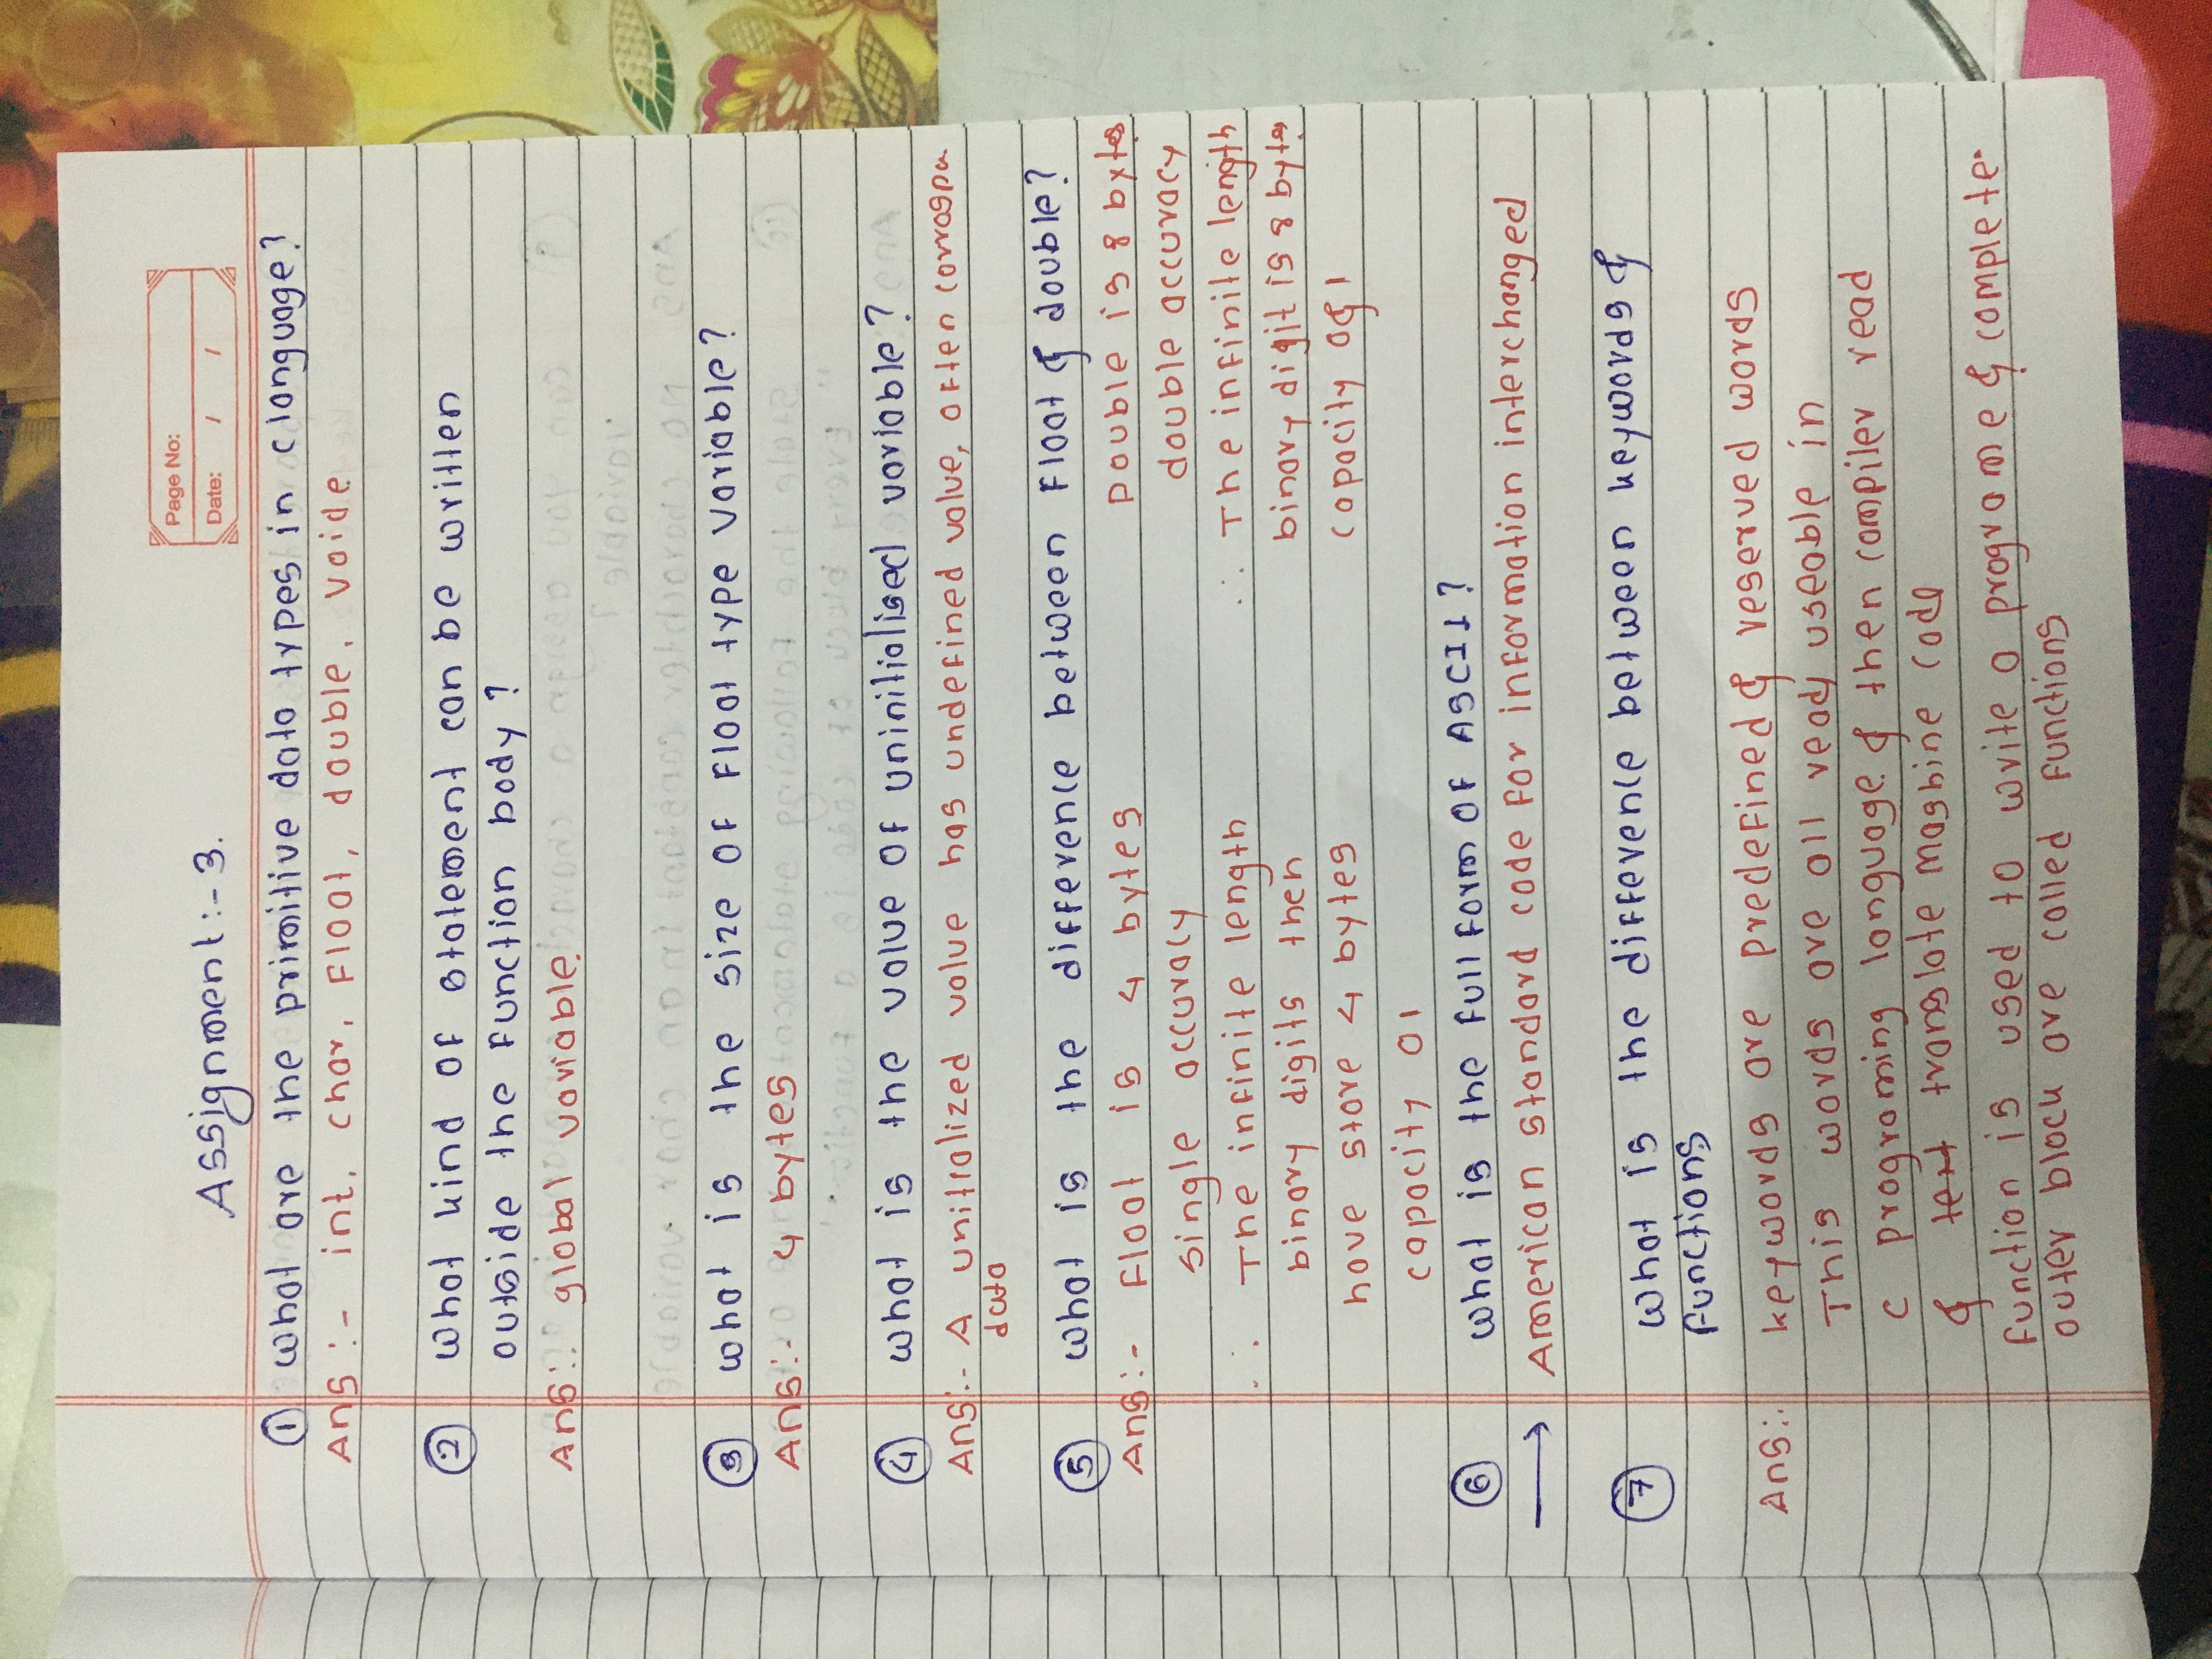 Page No:
Date: / /
Assignment:- 3.
① What are the primitive data types in c language?
Ans :- int, char, Float, double, voide
② What kind of statement can be written
outside the function body ?
Ans:- global variable.
③ What is the size of Float type variable?
Ans:- 4 bytes
④ What is the value of uninitialised variable?
Ans:- A unitialized value has undefined value, often
data
⑤ What is the difference between Float & double?
Ans:- Float is 4 bytes Double is 8 bytes
single accuracy double accuracy
∴ The infinite length ∴ The infinite length
binary digits then binary digit is 8 bytes
have store 4 bytes capacity
capacity 01
⑥ What is the full form of ASCII?
→ American standard code for information interchanged
⑦ What is the difference between keywords &
functions
Ans:- keywords are predefined & reserved words
This words are all ready useable in
c programing language & then compiler read
& text translate mashine code
function is used to write a programe & complete.
outer block are called functions